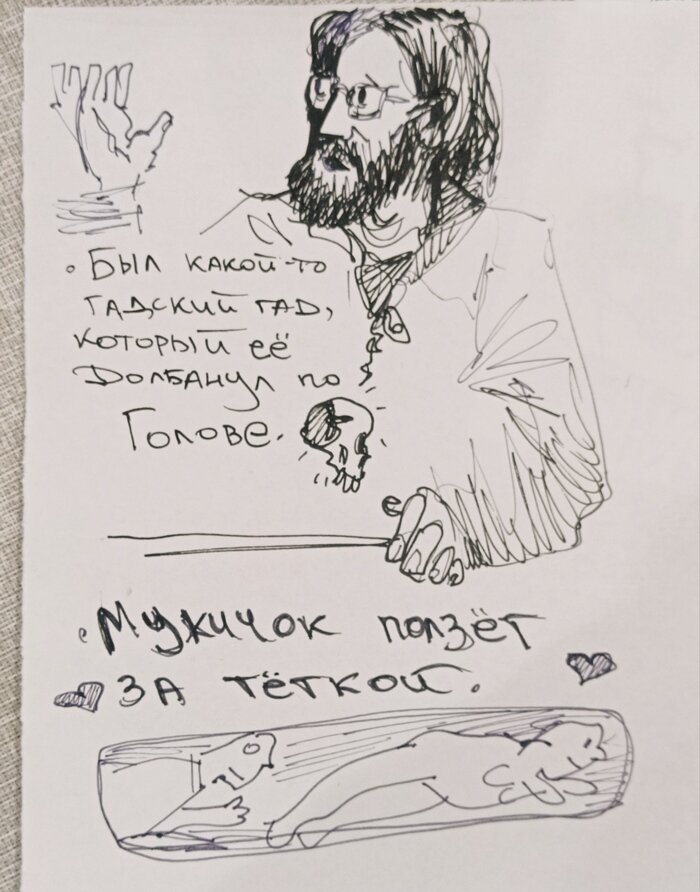 • Был какой-то
гадский гад,
который её
Долбанул по
Голове.
• Мужичок ползёт
за тёткой.